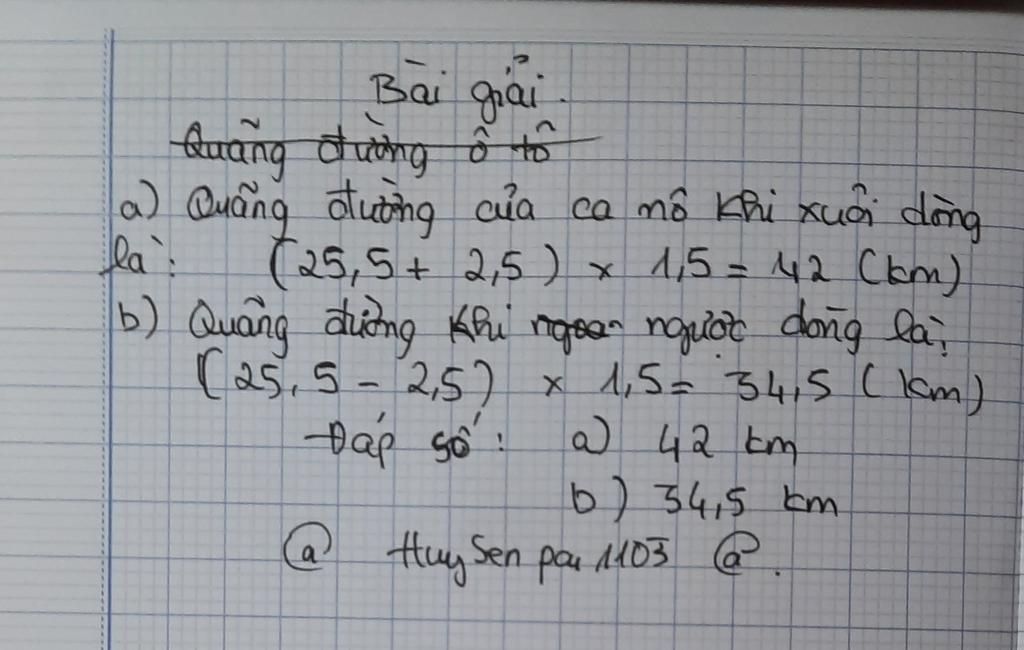 Bài giải.
Quãng đường ô tô
a) Quãng đường của ca nô khi xuôi dòng
là: (25,5 + 2,5) × 1,5 = 42 (km)
b) Quãng đường khi ngược dòng là:
(25,5 - 2,5) × 1,5 = 34,5 (km)
Đáp số: a) 42 km
b) 34,5 km
@ HuySenpai1103 @.